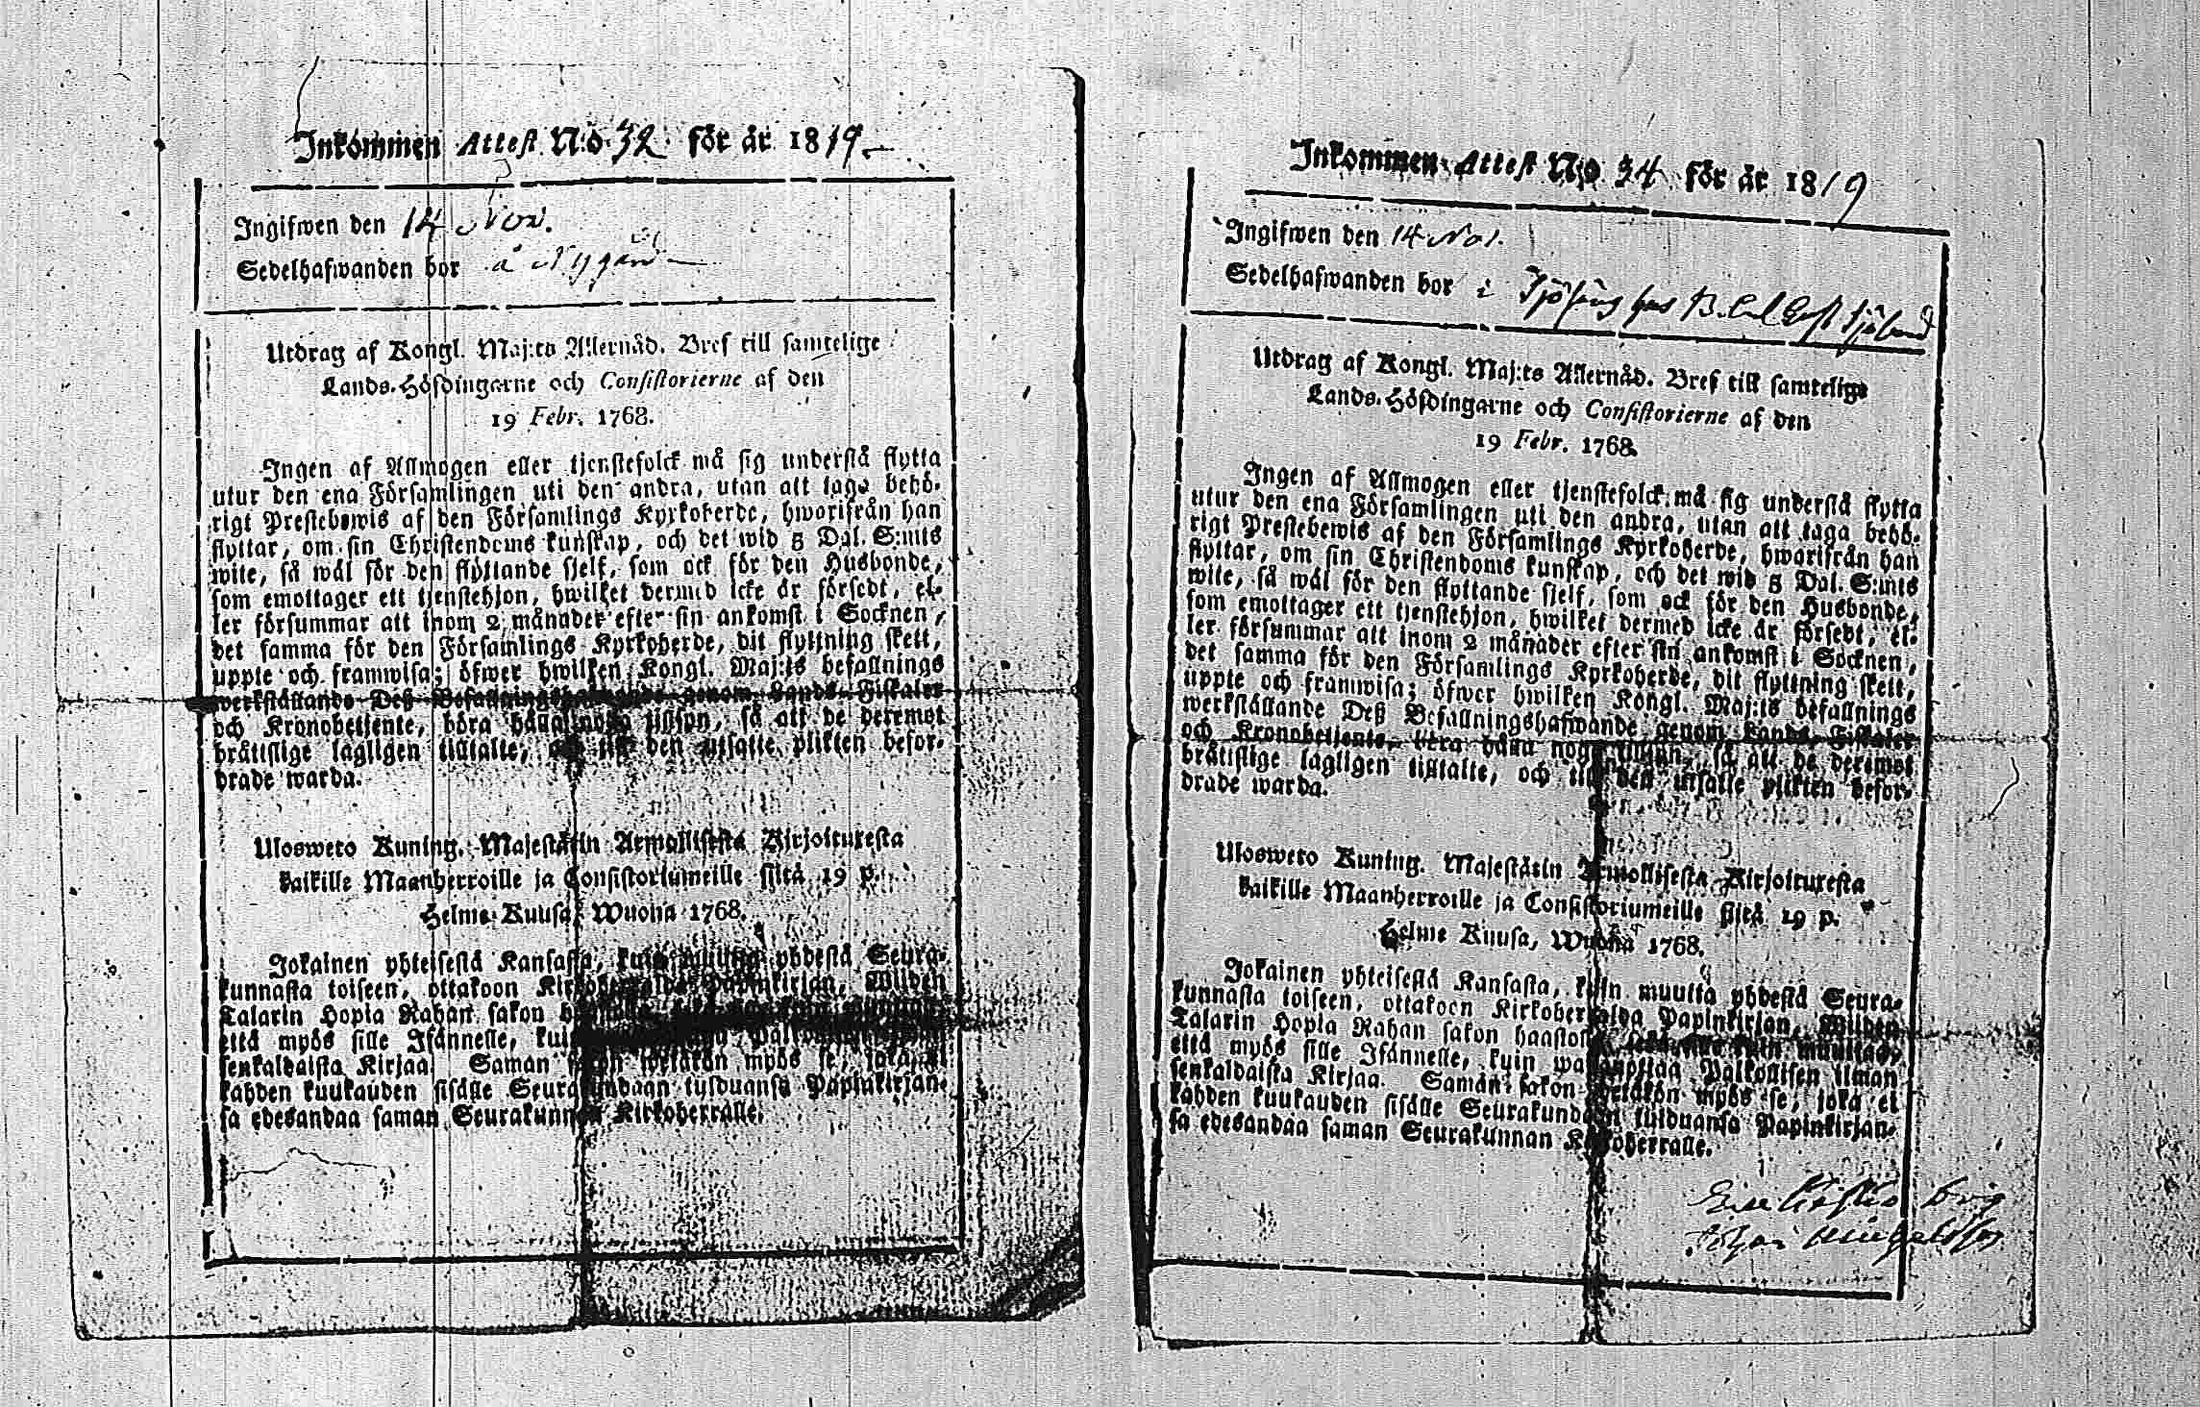 Inkommen Attest N:o 32 för år 1819
Ingifwen den 14 Nov.
Sedelhafwanden bor å Nygård
Utdrag af Kongl. Maj:ts Allernåd. Bref till samtelige
Lands-Höfdingarne och Consistorierne af den
19 Febr. 1768.
Ingen af Allmogen eller tjenstefolck må sig understå flytta
utur den ena Församlingen uti den andra, utan att taga behö-
rigt Prestebewis af den Församlings Kyrkoherde, hwarifrån han
flyttar, om sin Christendoms kunskap, och det wid 5 Dal. S:mts
wite, så wäl för den flyttande sjelf, som ock för den Husbonde,
som emottager ett tjenstehjon, hwilket dermed icke är försedt, el-
ler försummar att inom 2 månader efter sin ankomst i Socknen,
det samma för den Församlings Kyrkoherde, dit flyttning skett,
uppte och framwisa; öfwer hwilken Kongl. Maj:ts befallnings
werkställande Deß Befallningshafwande genom Lands-Fiskaler
och Kronobetjente, böra hålla noga tillsyn, så att de deremot
bråttslige lagligen tilltalte, och till den utsatte plikten befor-
drade warda.
Ulosweto Kuning. Majestätin Armollisesta Kirjoituxesta
kaikille Maanherroille ja Consistoriumeille siitä 19 p.
Helme-Kuusa, Wuonna 1768.
Jokainen yhteisestä Kansasta, kuin muutta yhdestä Seura-
kunnasta toiseen, ottakoon Kirkoherralda Papinkirjan, Wiiden
Talarin Hopia Rahan sakon haastolla, sekä sille kuin muuttaa,
että myös sille Isännelle, kuin wastanottaa Palkollisen ilman
senkaldaista Kirjaa. Saman sakon wetäkön myös se, joka ei
kahden kuukauden sisälle Seurakundaan tulduansa Papinkirjan-
sa edesandaa saman Seurakunnan Kirkoherralle.
Inkommen Attest N:o 34 för år 1819
Ingifwen den 14 Nov.
Sedelhafwanden bor i
Utdrag af Kongl. Maj:ts Allernåd. Bref till samtelige
Lands-Höfdingarne och Consistorierne af den
19 Febr. 1768.
Ingen af Allmogen eller tjenstefolck må sig understå flytta
utur den ena Församlingen uti den andra, utan att taga behö-
rigt Prestebewis af den Församlings Kyrkoherde, hwarifrån han
flyttar, om sin Christendoms kunskap, och det wid 5 Dal. S:mts
wite, så wäl för den flyttande sjelf, som ock för den Husbonde,
som emottager ett tjenstehjon, hwilket dermed icke är försedt, el-
ler försummar att inom 2 månader efter sin ankomst i Socknen,
det samma för den Församlings Kyrkoherde, dit flyttning skett,
uppte och framwisa; öfwer hwilken Kongl. Maj:ts befallnings
werkställande Deß Befallningshafwande genom Lands-Fiskaler
och Kronobetjente, böra hålla noga tillsyn, så att de deremot
bråttslige lagligen tilltalte, och till den utsatte plikten befor-
drade warda.
Ulosweto Kuning. Majestätin Armollisesta Kirjoituxesta
kaikille Maanherroille ja Consistoriumeille siitä 19 p.
Helme Kuusa, Wuonna 1768.
Jokainen yhteisestä Kansasta, kuin muutta yhdestä Seura-
kunnasta toiseen, ottakoon Kirkoherralda Papinkirjan, Wiiden
Talarin Hopia Rahan sakon haastolla, sekä sille kuin muuttaa,
että myös sille Isännelle, kuin wastanottaa Palkollisen ilman
senkaldaista Kirjaa. Saman sakon wetäkön myös se, joka ei
kahden kuukauden sisälle Seurakundaan tulduansa Papinkirjan-
sa edesandaa saman Seurakunnan Kirkoherralle.